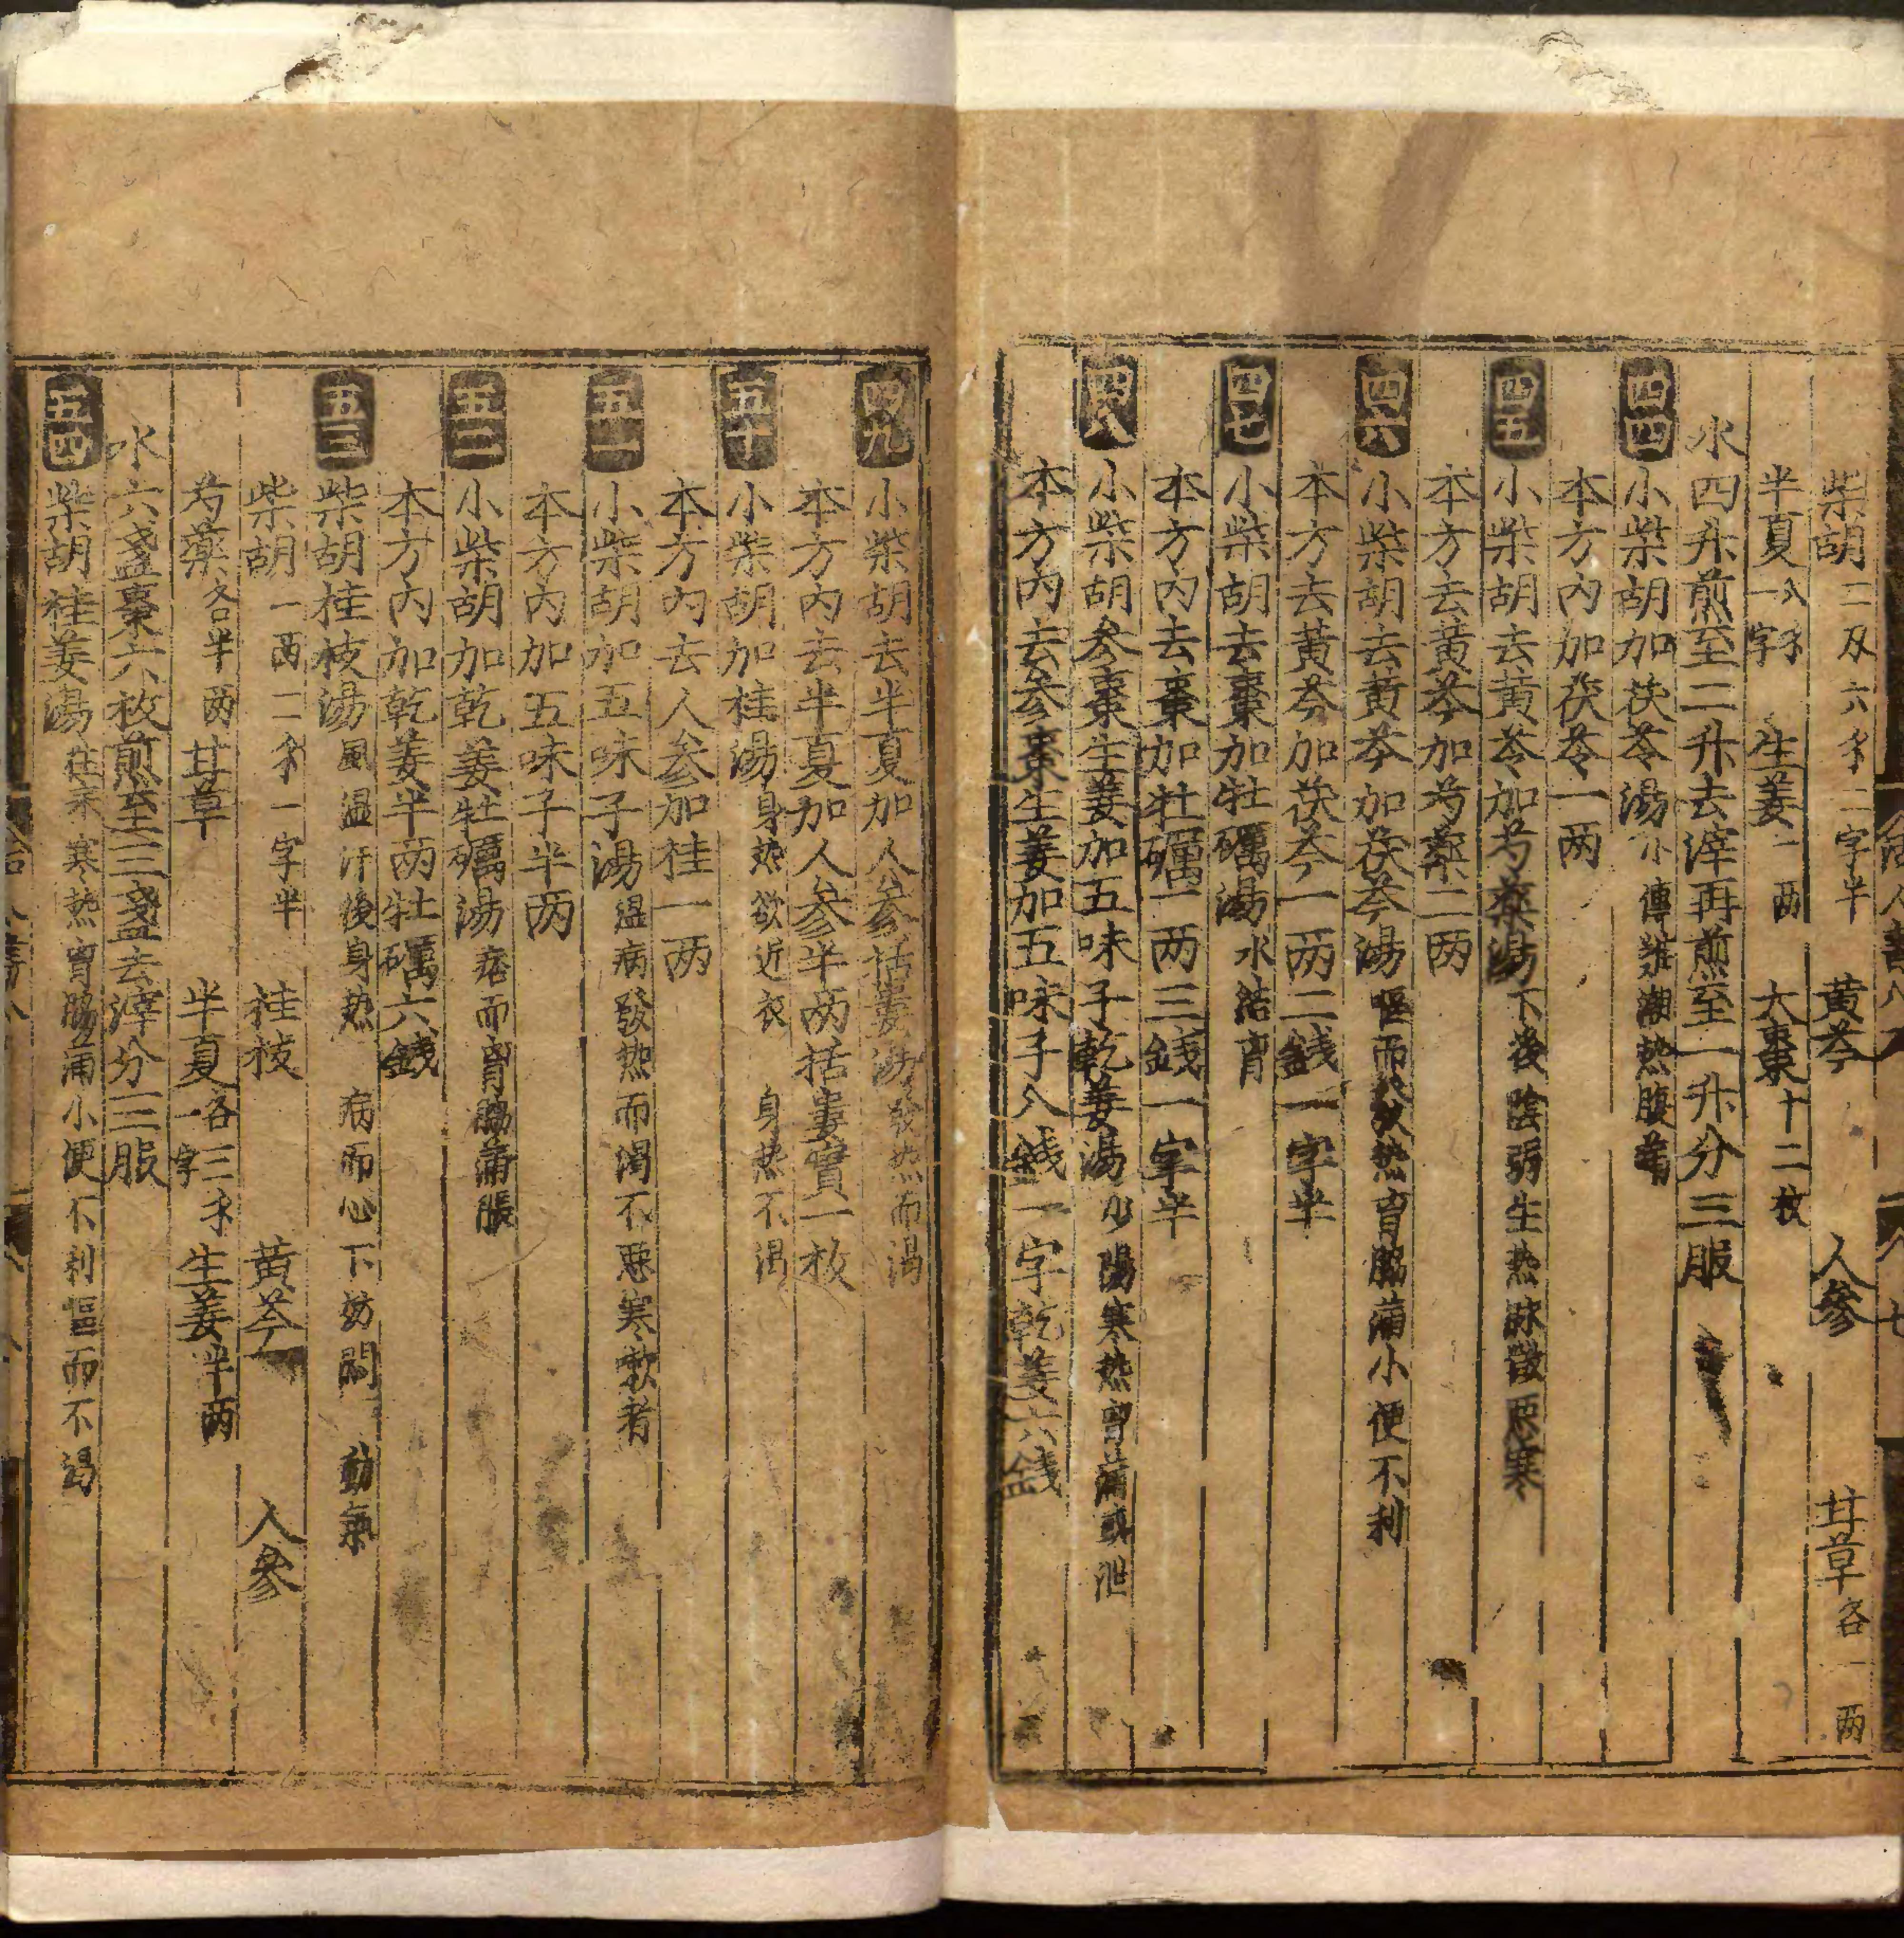 柴胡二及六銖二字半 黃芩 人參 甘草各一兩
半夏八銖一字 生姜一兩 大棗十二枚
水四升煎至二升去滓再煎至一升分三服
四四 小柴胡加茯苓湯 不傳雜潮熱腹蒲
本方內加茯苓一兩
四五 小柴胡去黃芩加芍藥湯 下後陰弱生熱脉微惡寒
本方去黃芩加芍藥二兩
四六 小柴胡去黃芩加茯苓湯 嘔而發熱胷脇蒲小便不利
本方去黃芩加茯苓一兩二錢一字半
四七 小柴胡去棗加牡礪湯 水結胷
本方內去棗加牡礪一兩三錢一字半
四八 小柴胡去參棗生姜加五味子乾姜湯 少陽寒熱胷蒲或泄
本方內去參棗生姜加五味子八錢一字乾姜六錢
四九 小柴胡去半夏加人參括蔞湯 發熱而渴
本方內去半夏加人參半兩括蔞實一枚
五十 小柴胡加桂湯 身熱欲近衣 身熱不渴
本方內去人參加桂一兩
五一 小柴胡加五味子湯 溫病發熱而渴不惡寒欬者
本方內加五味子半兩
五二 小柴胡加乾姜牡礪湯 痞而胷脇蒲脹
本方內加乾姜半兩牡礪六錢
五三 柴胡桂枝湯 風溫汗後身熱 病而心下妨悶 動氣
柴胡一兩二銖一字半 桂枝 黃芩 人參
芍藥各半兩 甘草 半夏各三銖一字 生姜半兩
水六盞棗六枚煎至三盞去滓分三服
五四 柴胡桂姜湯 往來寒熱胷脇蒲小便不利嘔而不渴